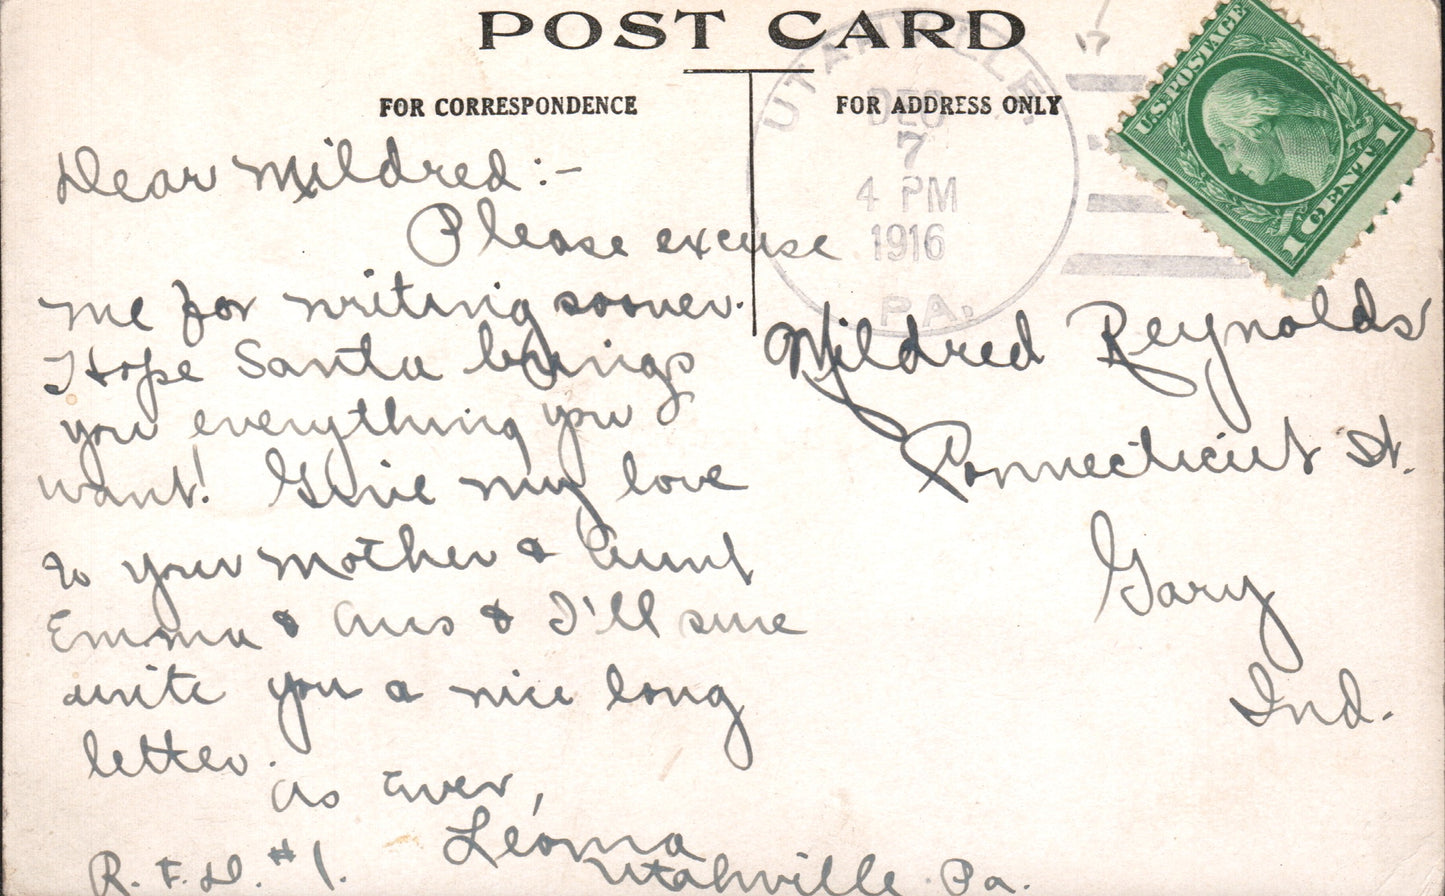 POST CARD
FOR CORRESPONDENCE
FOR ADDRESS ONLY
UTAHVILLE
DEC
7
4 PM
1916
PA.
U.S. POSTAGE
1 CENT 1
Dear Mildred:-
Please excuse
me for writing sooner.
I Hope Santa brings
you everything you
want! Give my love
to your mother & Aunt
Emma & & I'll sure
write you a nice long
letter.
As Ever,
Leoma
R.F.D. #1. Utahville Pa.
Mildred Reynolds
Connecticut St.
Gary
Ind.